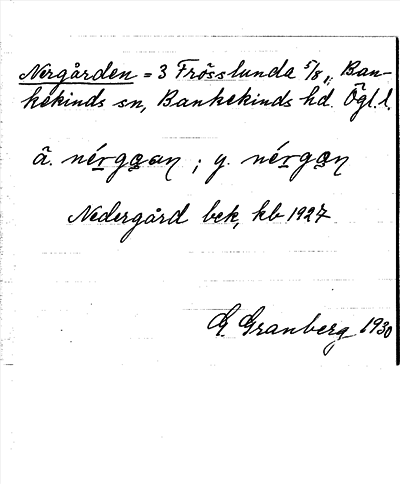 Nergården = 3 Frösslunda 5/8, Ban-
kekinds sn, Bankekinds hd. Ögl. l.
ä. nérgaan ; y. nérgan
Nedergård bek, kb 1927
G. Granberg 1930